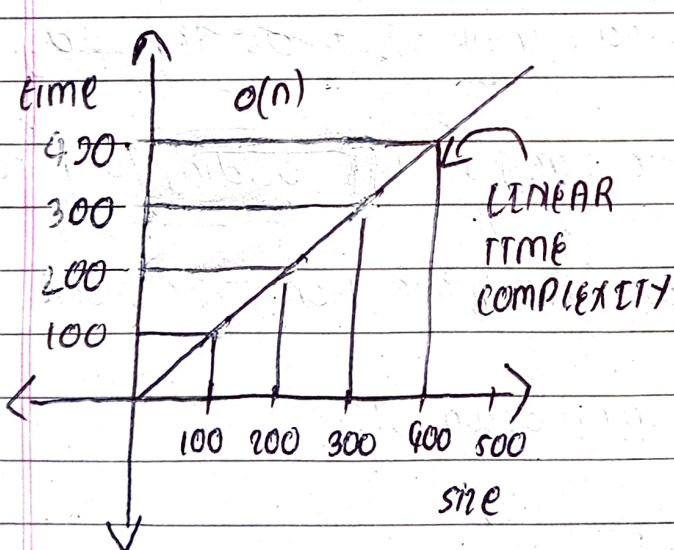 time
O(n)
400
300
200
100
LINEAR
TIME
COMPLEXITY
100 200 300 400 500
size